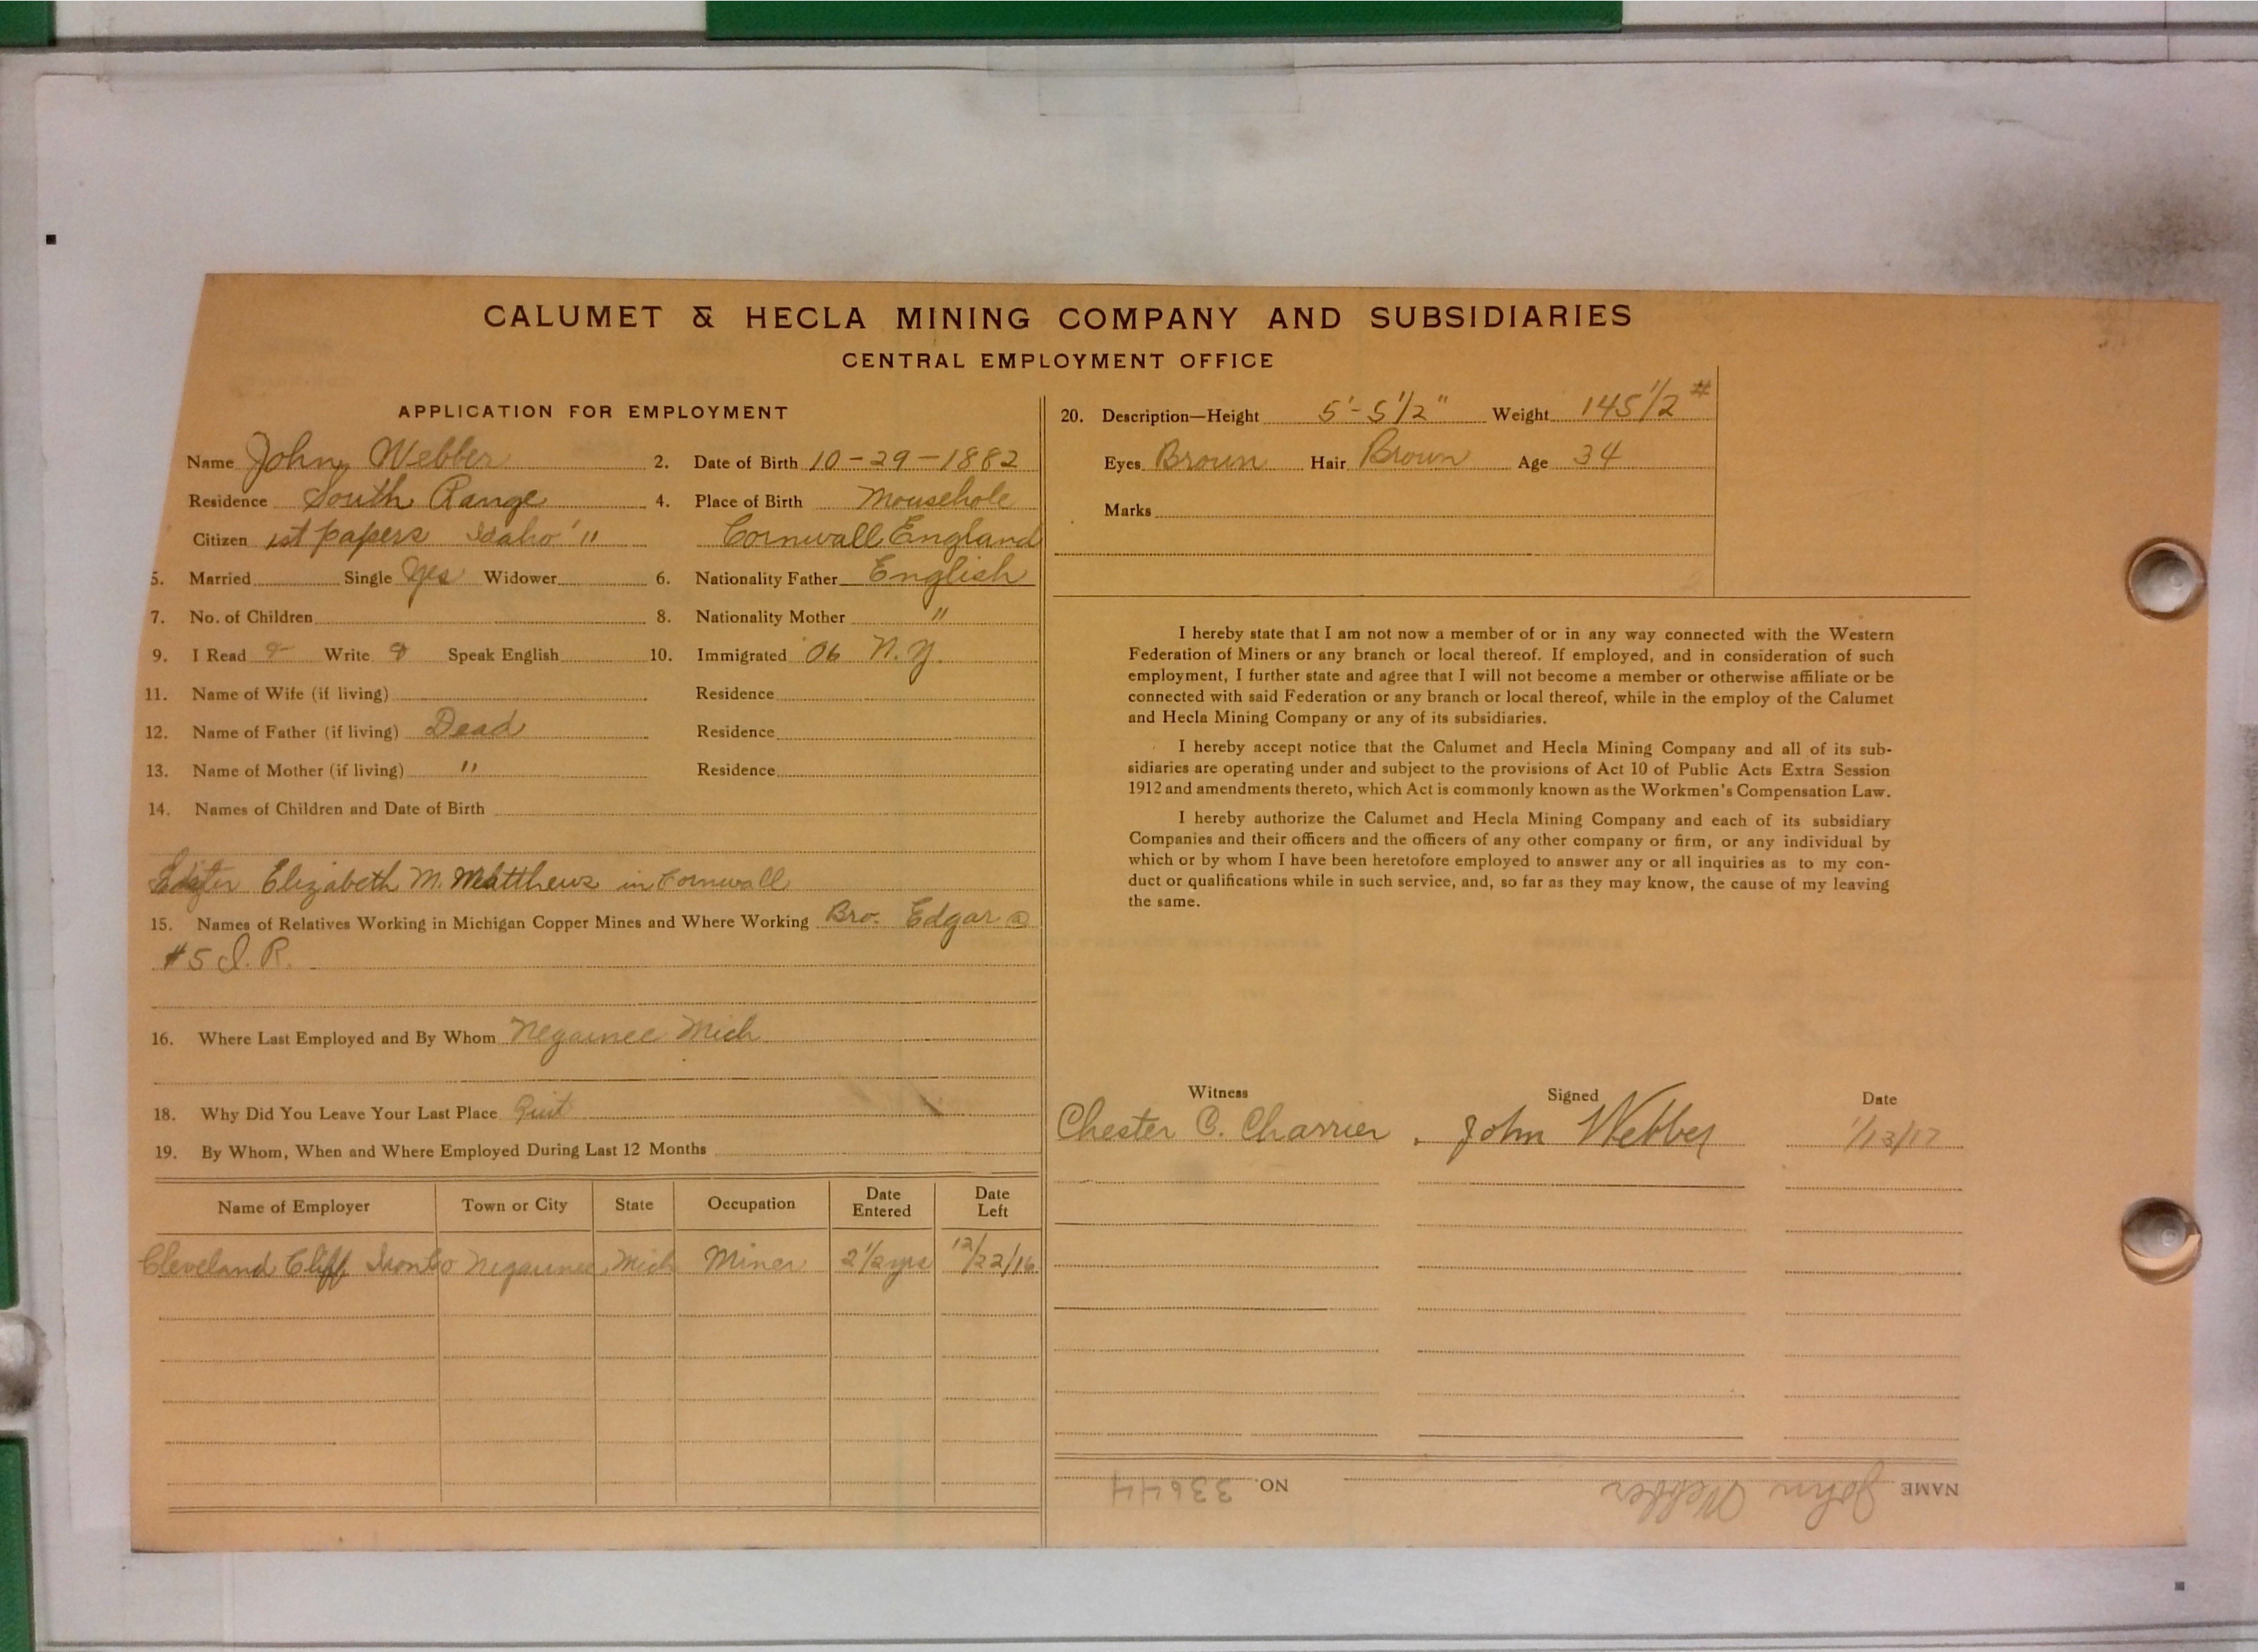 CALUMET & HECLA MINING COMPANY AND SUBSIDIARIES
CENTRAL EMPLOYMENT OFFICE
APPLICATION FOR EMPLOYMENT
Name John Webber
2. Date of Birth 10-29-1882
Residence South Range
4. Place of Birth Mousehole
Citizen 1st papers Idaho '11
Cornwall England
5. Married Single Yes Widower
6. Nationality Father English
7. No. of Children
8. Nationality Mother "
9. I Read Write Speak English
10. Immigrated '06 N.Y.
11. Name of Wife (if living) Residence
12. Name of Father (if living) Dead Residence
13. Name of Mother (if living) " Residence
14. Names of Children and Date of Birth
Sister Elizabeth M. Matthews in Cornwall
15. Names of Relatives Working in Michigan Copper Mines and Where Working Bro. Edgar @
#5 I. R.
16. Where Last Employed and By Whom Negaunee Mich
18. Why Did You Leave Your Last Place Quit
19. By Whom, When and Where Employed During Last 12 Months
Name of Employer Town or City State Occupation Date Entered Date Left
Cleveland Cliff Iron Co Negaunee Mich Miner 2 1/2 yrs 12/22/16
20. Description—Height 5'-5 1/2" Weight 145 1/2 #
Eyes Brown Hair Brown Age 34
Marks
I hereby state that I am not now a member of or in any way connected with the Western
Federation of Miners or any branch or local thereof. If employed, and in consideration of such
employment, I further state and agree that I will not become a member or otherwise affiliate or be
connected with said Federation or any branch or local thereof, while in the employ of the Calumet
and Hecla Mining Company or any of its subsidiaries.
I hereby accept notice that the Calumet and Hecla Mining Company and all of its sub-
sidiaries are operating under and subject to the provisions of Act 10 of Public Acts Extra Session
1912 and amendments thereto, which Act is commonly known as the Workmen's Compensation Law.
I hereby authorize the Calumet and Hecla Mining Company and each of its subsidiary
Companies and their officers and the officers of any other company or firm, or any individual by
which or by whom I have been heretofore employed to answer any or all inquiries as to my con-
duct or qualifications while in such service, and, so far as they may know, the cause of my leaving
the same.
Witness Signed Date
Chester C. Charrier John Webber 1/13/17
NAME John Webber NO. 33644